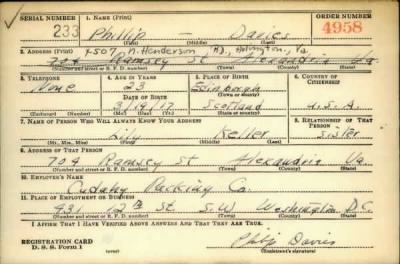 SERIAL NUMBER 1. NAME (Print) ORDER NUMBER
233 Phillip — Davies 4958
4507 N. Henderson Rd., Arlington, Va.
2. ADDRESS (Print)
704 Ramsey St Alexandria Va
(Number and street or R. F. D. number) (Town) (County) (State)
3. TELEPHONE 4. AGE IN YEARS 5. PLACE OF BIRTH 6. COUNTRY OF CITIZENSHIP
None 23 Edinburgh
DATE OF BIRTH
3/19/17 Scotland U.S.A.
(Exchange) (Number) (Mo.) (Day) (Yr.) (State or country)
7. NAME OF PERSON WHO WILL ALWAYS KNOW YOUR ADDRESS 8. RELATIONSHIP OF THAT PERSON
Lily Keller Sister
(Mr., Mrs., Miss) (First) (Middle) (Last)
9. ADDRESS OF THAT PERSON
704 Ramsey St Alexandria Va.
(Number and street or R. F. D. number) (Town) (County) (State)
10. EMPLOYER'S NAME
Cudahy Packing Co.
11. PLACE OF EMPLOYMENT OR BUSINESS
931 12th St. S.W. Washington D.C.
(Number and street or R. F. D. number) (Town) (County) (State)
I AFFIRM THAT I HAVE VERIFIED ABOVE ANSWERS AND THAT THEY ARE TRUE.
REGISTRATION CARD
D. S. S. Form 1 (over) Philip Davies
(Registrant's signature)